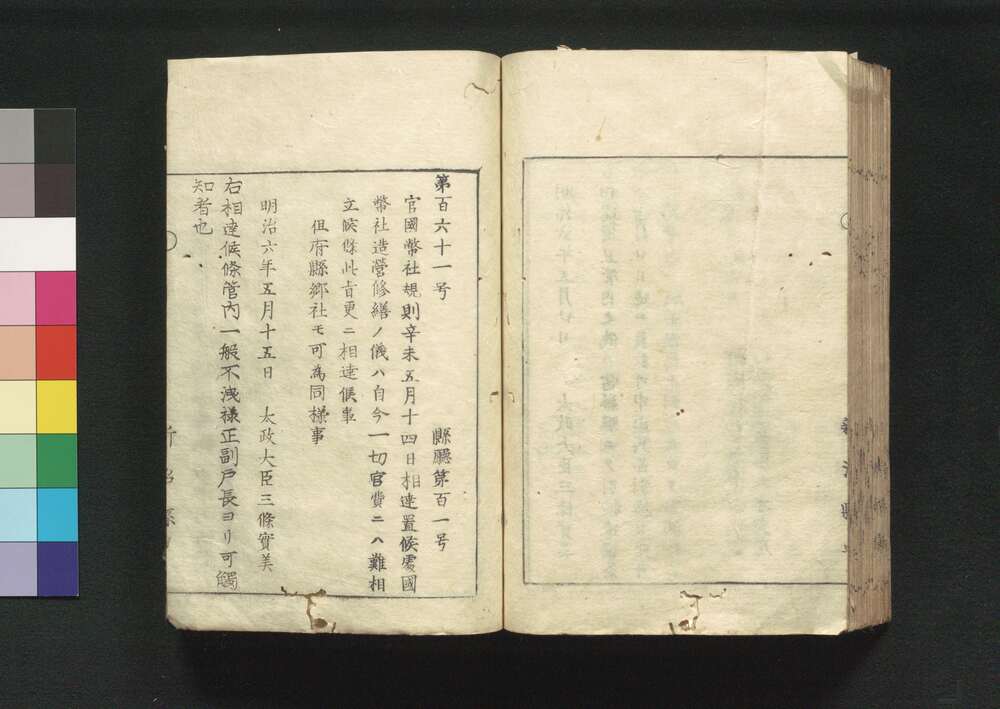 第百六十一号　縣廳第百一号
官國幣社規則辛未五月十四日相達置候處國
幣社造營修繕ノ儀ハ自今一切官費ニハ難相
立候條此旨更ニ相達候事
但府縣郷社モ可為同様事
明治六年五月十五日　太政大臣三條實美
右相達候條管内一般不洩様正副戸長ヨリ可觸
知者也